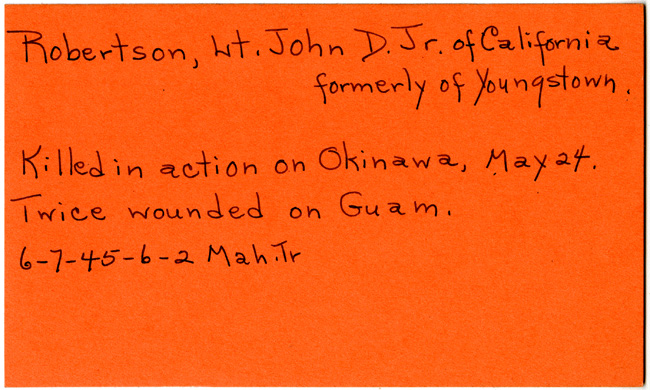 Robertson, Lt. John D. Jr. of California
formerly of Youngstown.
Killed in action on Okinawa, May 24.
Twice wounded on Guam.
6-7-45-6-2 Mah.Tr